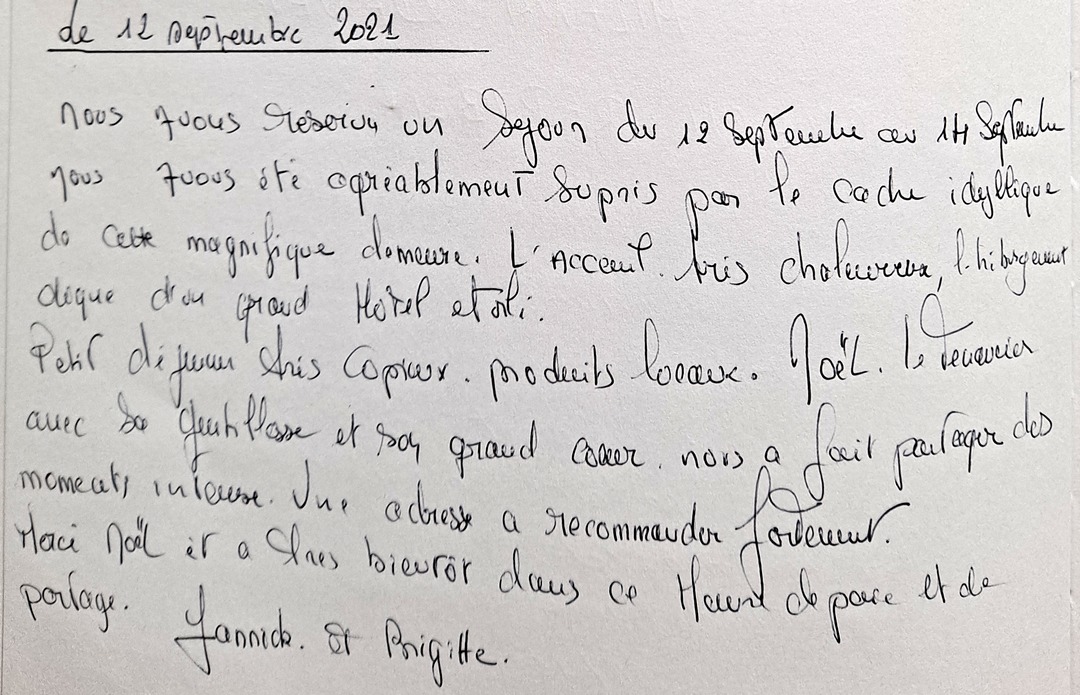 de 12 septembre 2021
nous avons reserver un Sejour du 12 Septembre au 14 Septembre
nous avons été agréablement Supris par le cache idyllique
de cette magnifique demeure. L'Acceuil. très chaleureux, l'hibergement
digne d'un grand Hôtel etoili.
Petit déjeuner très Copieux. produits locaux. Noël. le tenancier
avec sa gentillesse et son grand coeur. nous a fait partager des
moments intense. Une adresse a recommander fortement.
Merci Noël et a tres bientôt dans ce Havre de paix et de
partage. Yannick. Et Brigitte.